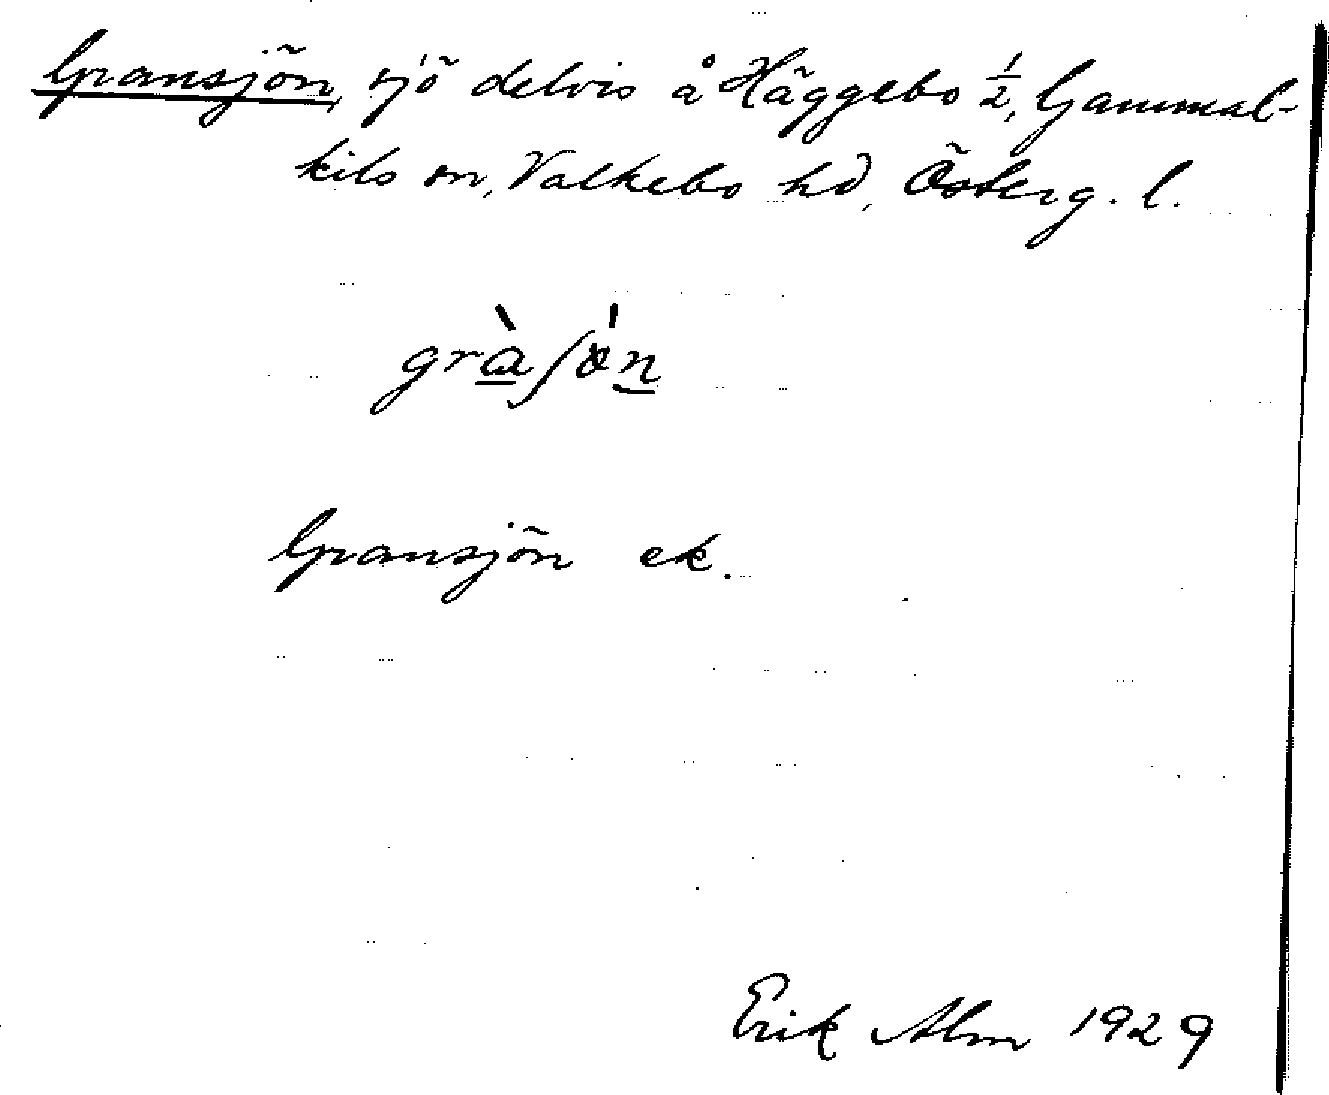 Gransjön, sjö delvis å Häggebo 1/2, Gammal-
kils sn, Valkebo hd, Österg. l.
gràʃön
Gransjön ek.
Erik Alm 1929